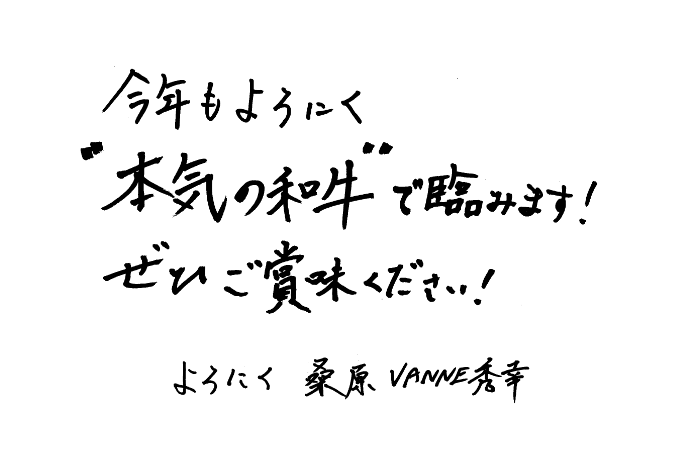 今年もようにく
"本気の和牛"で臨みます!
ぜひご賞味ください!
ようにく 桑原 VANNE秀幸